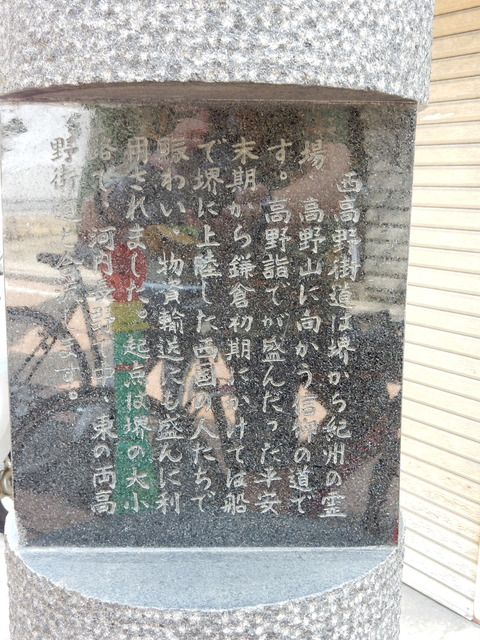 西高野街道は堺から紀州の霊
場 高野山に向かう信仰の道で
す。高野詣でが盛んだった平安
末期から鎌倉初期にかけては船
で堺に上陸した西国の人たちで
賑わい、物資輸送にも盛んに利
用されました。起点は堺の大小
路で、河内長野で中、東の両高
野街道と合流します。